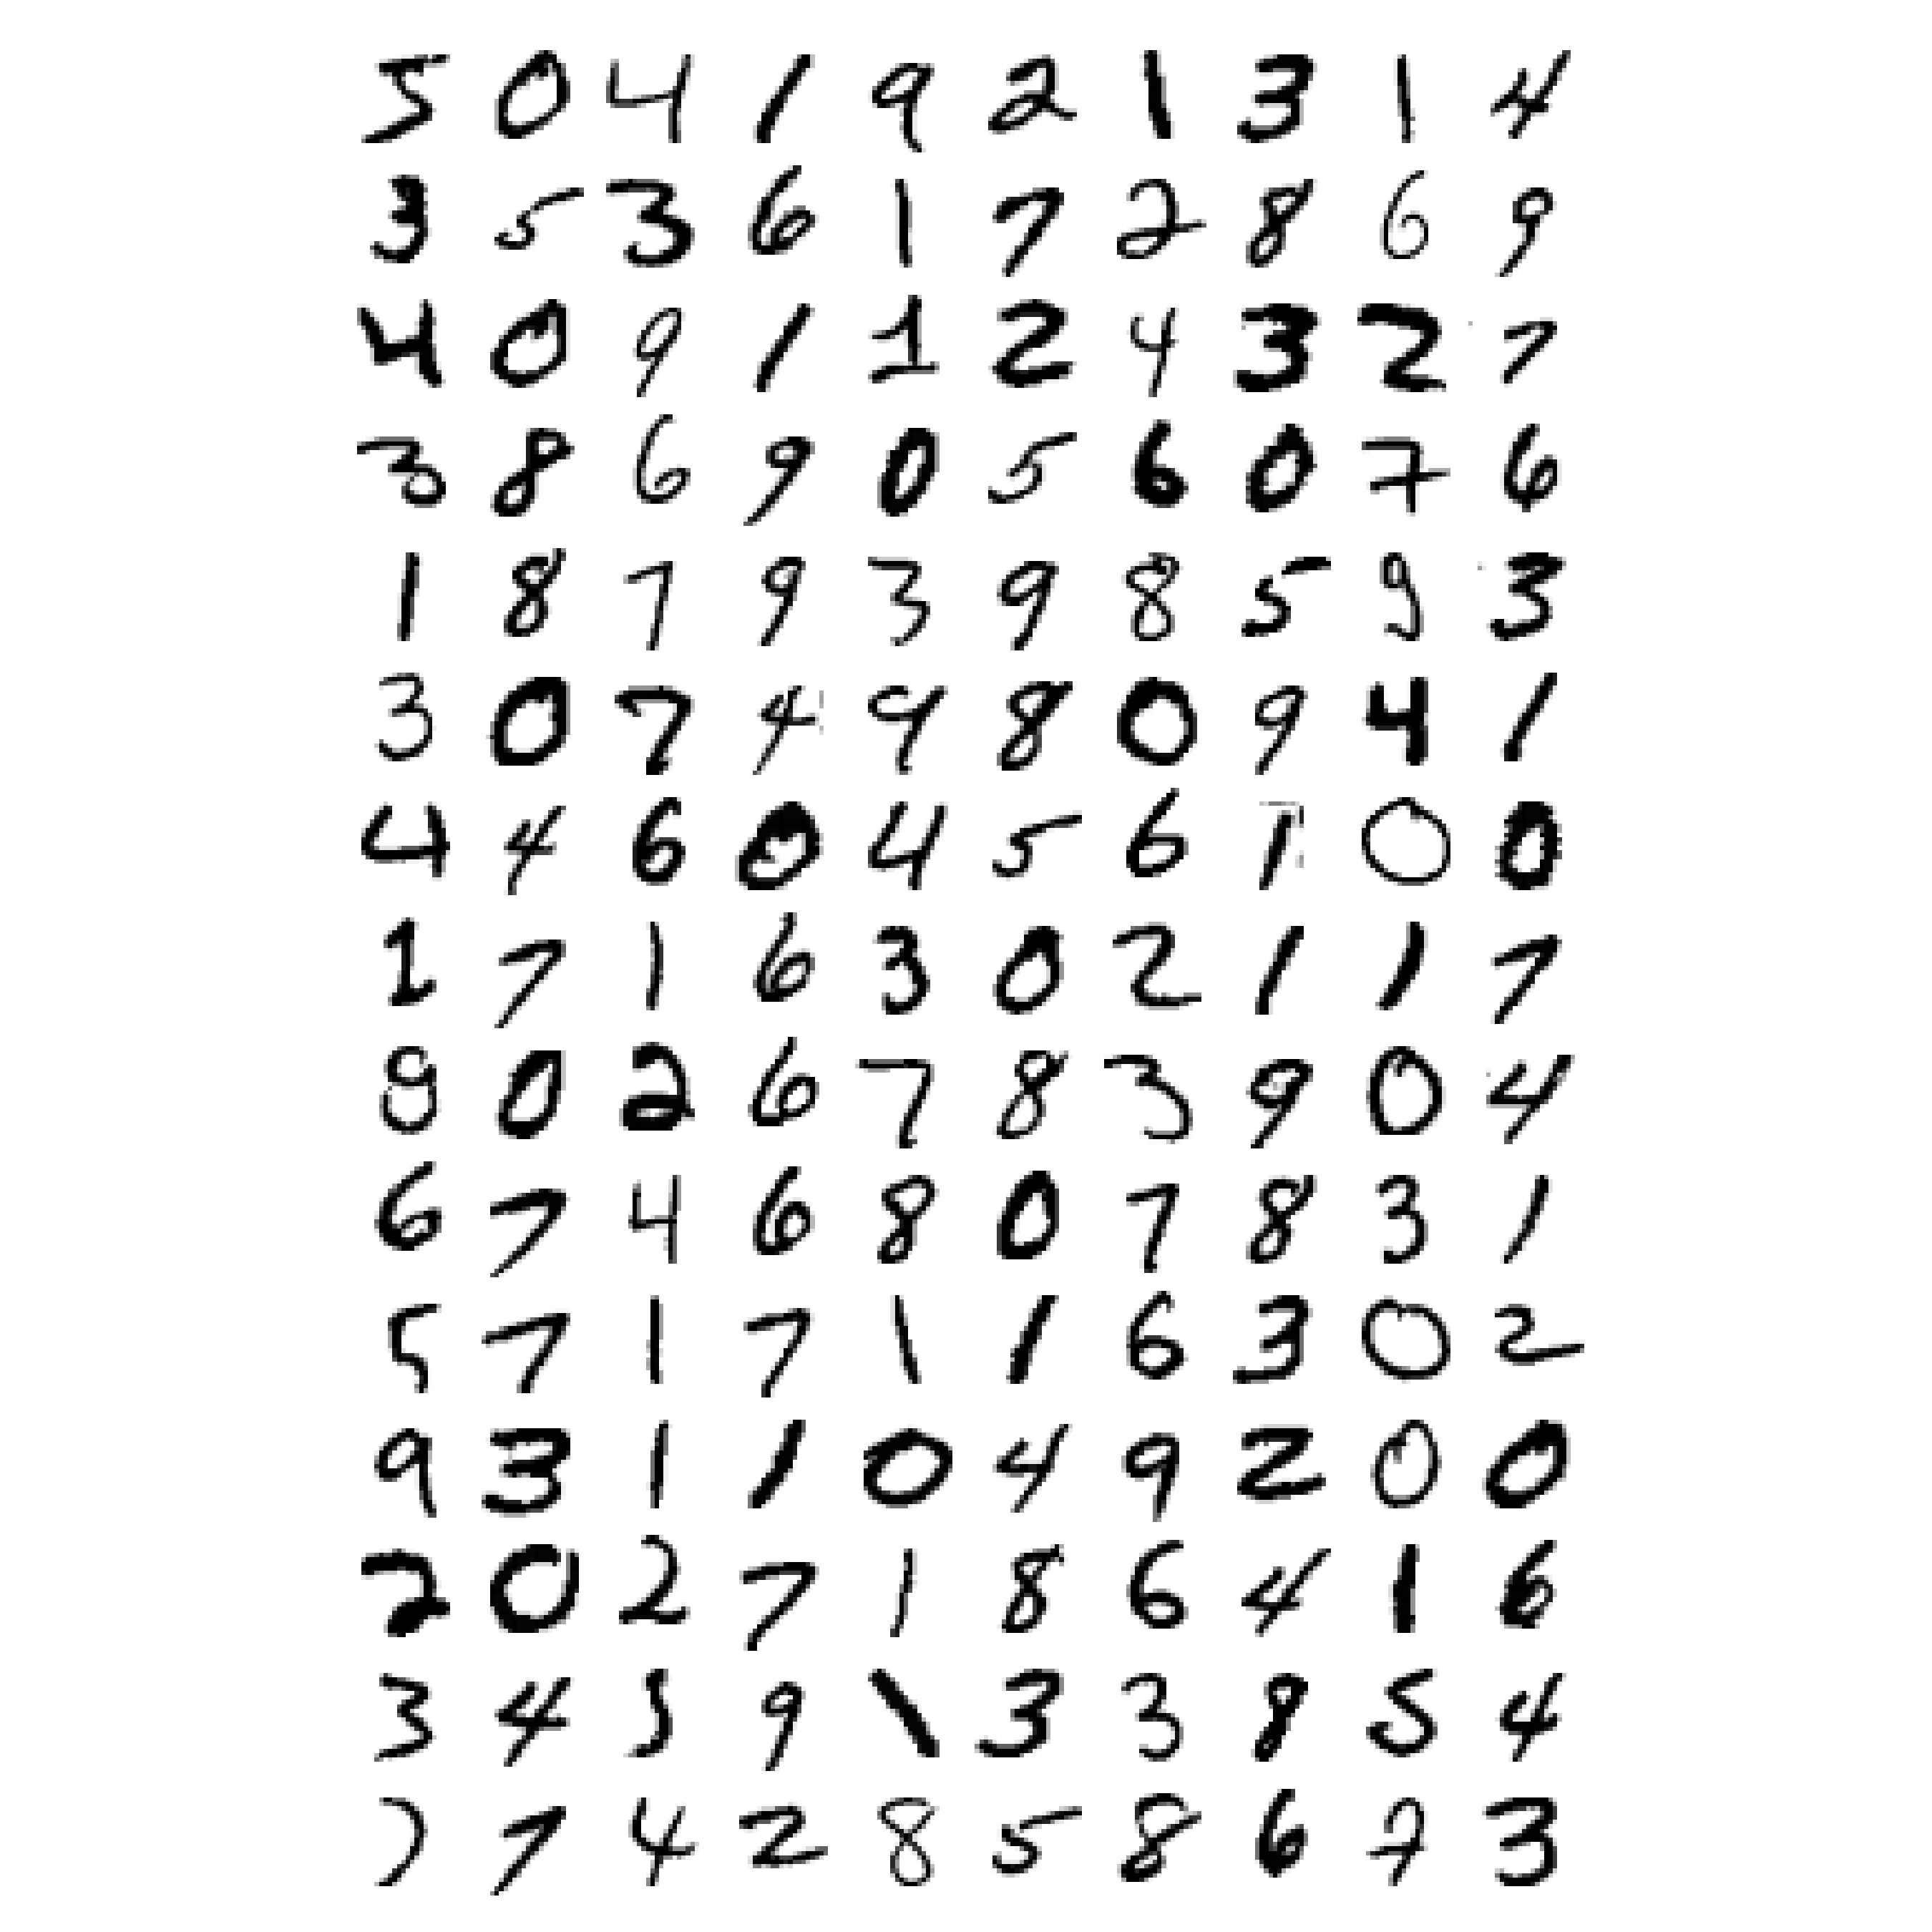 5 0 4 1 9 2 1 3 1 4
3 5 3 6 1 7 2 8 6 9
4 0 9 1 1 2 4 3 2 7
3 8 6 9 0 5 6 0 7 6
1 8 7 9 3 9 8 5 9 3
3 0 7 4 9 8 0 9 4 1
4 4 6 0 4 5 6 1 0 0
1 7 1 6 3 0 2 1 1 7
8 0 2 6 7 8 3 9 0 4
6 7 4 6 8 0 7 8 3 1
5 7 1 7 1 1 6 3 0 2
9 3 1 1 0 4 9 2 0 0
2 0 2 7 1 8 6 4 1 6
3 4 5 9 1 3 3 8 5 4
7 7 4 2 8 5 8 6 7 3